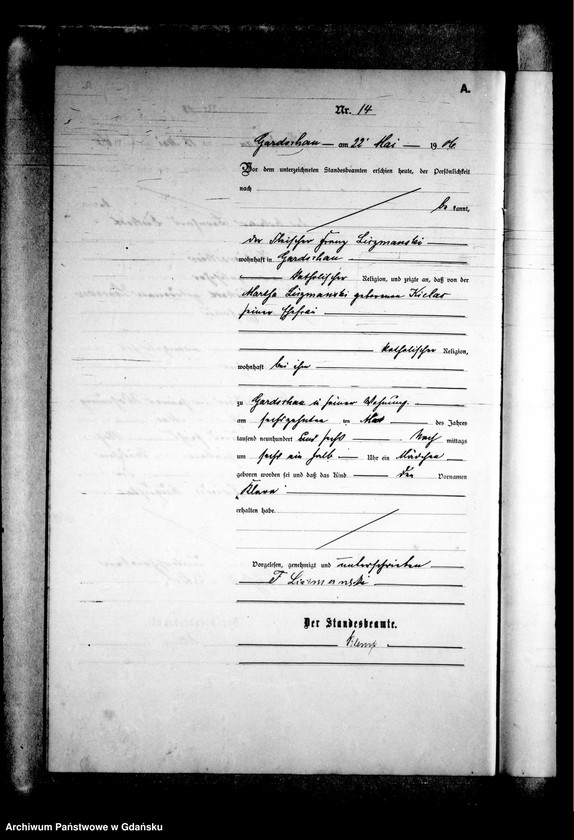 A.
Nr. 14
Gardschau am 22 Mai 1906.
Vor dem unterzeichneten Standesbeamten erschien heute, der Persönlichkeit
nach
be kannt,
der Fleischer Franz Liszmanski
wohnhaft in Gardschau
katholischer Religion, und zeigte an, daß von der
Martha Liszmanski geborenen
seiner Ehefrau
katholischer Religion,
wohnhaft bei ihm
zu Gardschau in seiner Wohnung
am sechszehnten ten Mai des Jahres
tausend neunhundert und sechs Nach mittags
um sechs ein halb Uhr ein Mädchen
geboren worden sei und daß das Kind den Vornamen
„Klara“
erhalten habe.
Vorgelesen, genehmigt und unterschrieben
F Liszmanski
Der Standesbeamte.
Archiwum Państwowe w Gdańsku